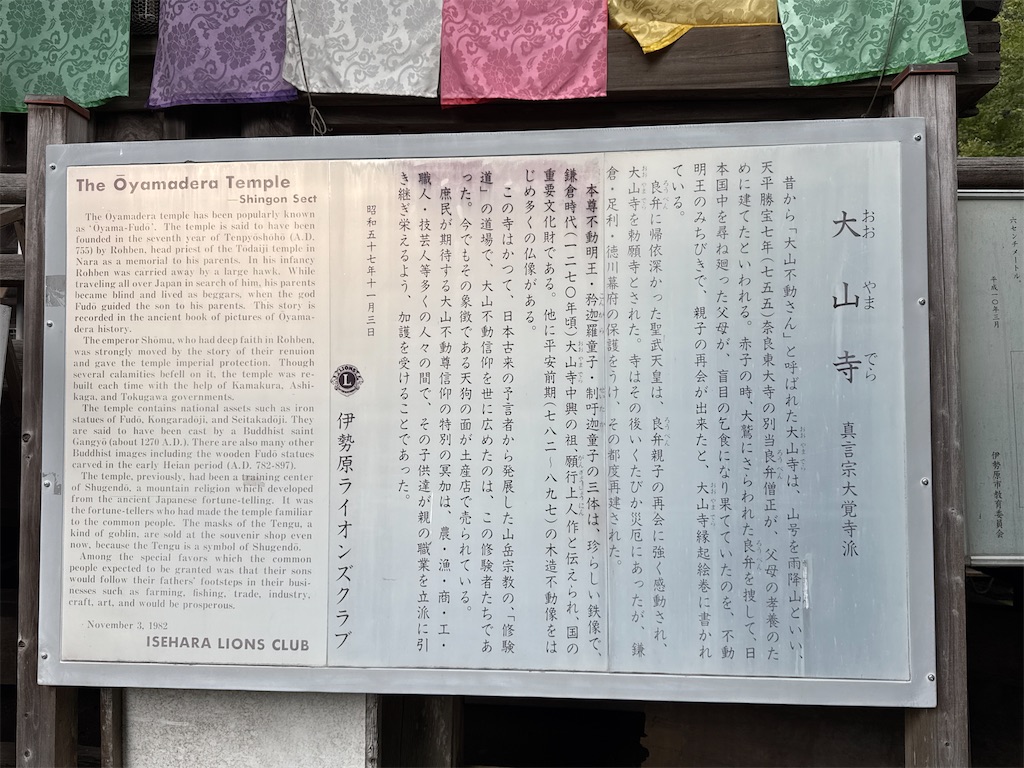 The Ōyamadera Temple
—Shingon Sect
The Oyamadera temple has been popularly known
as 'Oyama-Fudō'. The temple is said to have been
founded in the seventh year of Tenpyōshōhō (A.D.
755) by Rohben, head priest of the Tōdaiji temple in
Nara as a memorial to his parents. In his infancy
Rohben was carried away by a large hawk. While
traveling all over Japan in search of him, his parents
became blind and lived as beggars, when the god
Fudō guided the son to his parents. This story is
recorded in the ancient book of pictures of Oyama-
dera history.
The emperor Shōmu, who had deep faith in Rohben,
was strongly moved by the story of their reunion
and gave the temple imperial protection. Though
several calamities befell on it, the temple was re-
built each time with the help of Kamakura, Ashi-
kaga, and Tokugawa governments.
The temple contains national assets such as iron
statues of Fudō, Kongaradōji, and Seitakadōji. They
are said to have been cast by a Buddhist saint
Gangyō (about 1270 A.D.). There are also many other
Buddhist images including the wooden Fudō statues
carved in the early Heian period (A.D. 782-897).
The temple, previously, had been a training center
of Shugendō, a mountain religion which developed
from the ancient Japanese fortune-telling. It was
the fortune-tellers who had made the temple familiar
to the common people. The masks of the Tengu, a
kind of goblin, are sold at the souvenir shop even
now, because the Tengu is a symbol of Shugendō.
Among the special favors which the common
people expected to be granted was that their sons
would follow their fathers' footsteps in their busi-
nesses such as farming, fishing, trade, industry,
craft, art, and would be prosperous.
November 3, 1982
ISEHARA LIONS CLUB
大山寺 真言宗大覚寺派
おお やま でら
昔から「大山不動さん」と呼ばれた大山寺は、山号を雨降山といい、
天平勝宝七年(七五五)奈良東大寺の別当良弁僧正が、父母の孝養のた
めに建てたといわれる。赤子の時、大鷲にさらわれた良弁を捜して、日
本国中を尋ね廻った父母が、盲目の乞食になり果てていたのを、不動
明王のみちびきで、親子の再会が出来たと、大山寺縁起絵巻に書かれ
ている。
良弁に帰依深かった聖武天皇は、良弁親子の再会に強く感動され、
大山寺を勅願寺とされた。寺はその後いくたびか災厄にあったが、鎌
倉・足利・徳川幕府の保護をうけ、その都度再建された。
本尊不動明王・矜迦羅童子・制吒迦童子の三体は、珍らしい鉄像で、
鎌倉時代(一二七〇年頃)大山寺中興の祖、願行上人作と伝えられ、国の
重要文化財である。他に平安前期(七八二〜八九七)の木造不動像をは
じめ多くの仏像がある。
この寺はかつて、日本古来の予言者から発展した山岳宗教の、「修験
道」の道場で、大山不動信仰を世に広めたのは、この修験者たちであ
った。今でもその象徴である天狗の面が土産店で売られている。
庶民が期待する大山不動尊信仰の特別の冥加は、農・漁・商・工・
職人・技芸人等多くの人々の間で、その子供達が親の職業を立派に引
き継ぎ栄えるよう、加護を受けることであった。
昭和五十七年十一月三日
伊勢原ライオンズクラブ
LIONS
L
六センチメートル、
平成一〇年三月
伊勢原市教育委員会